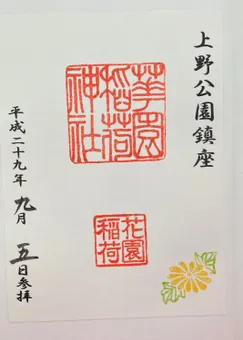 上野公園鎮座
華園
稲荷
神社
花園
稲荷
平成二十九年九月五日参拝